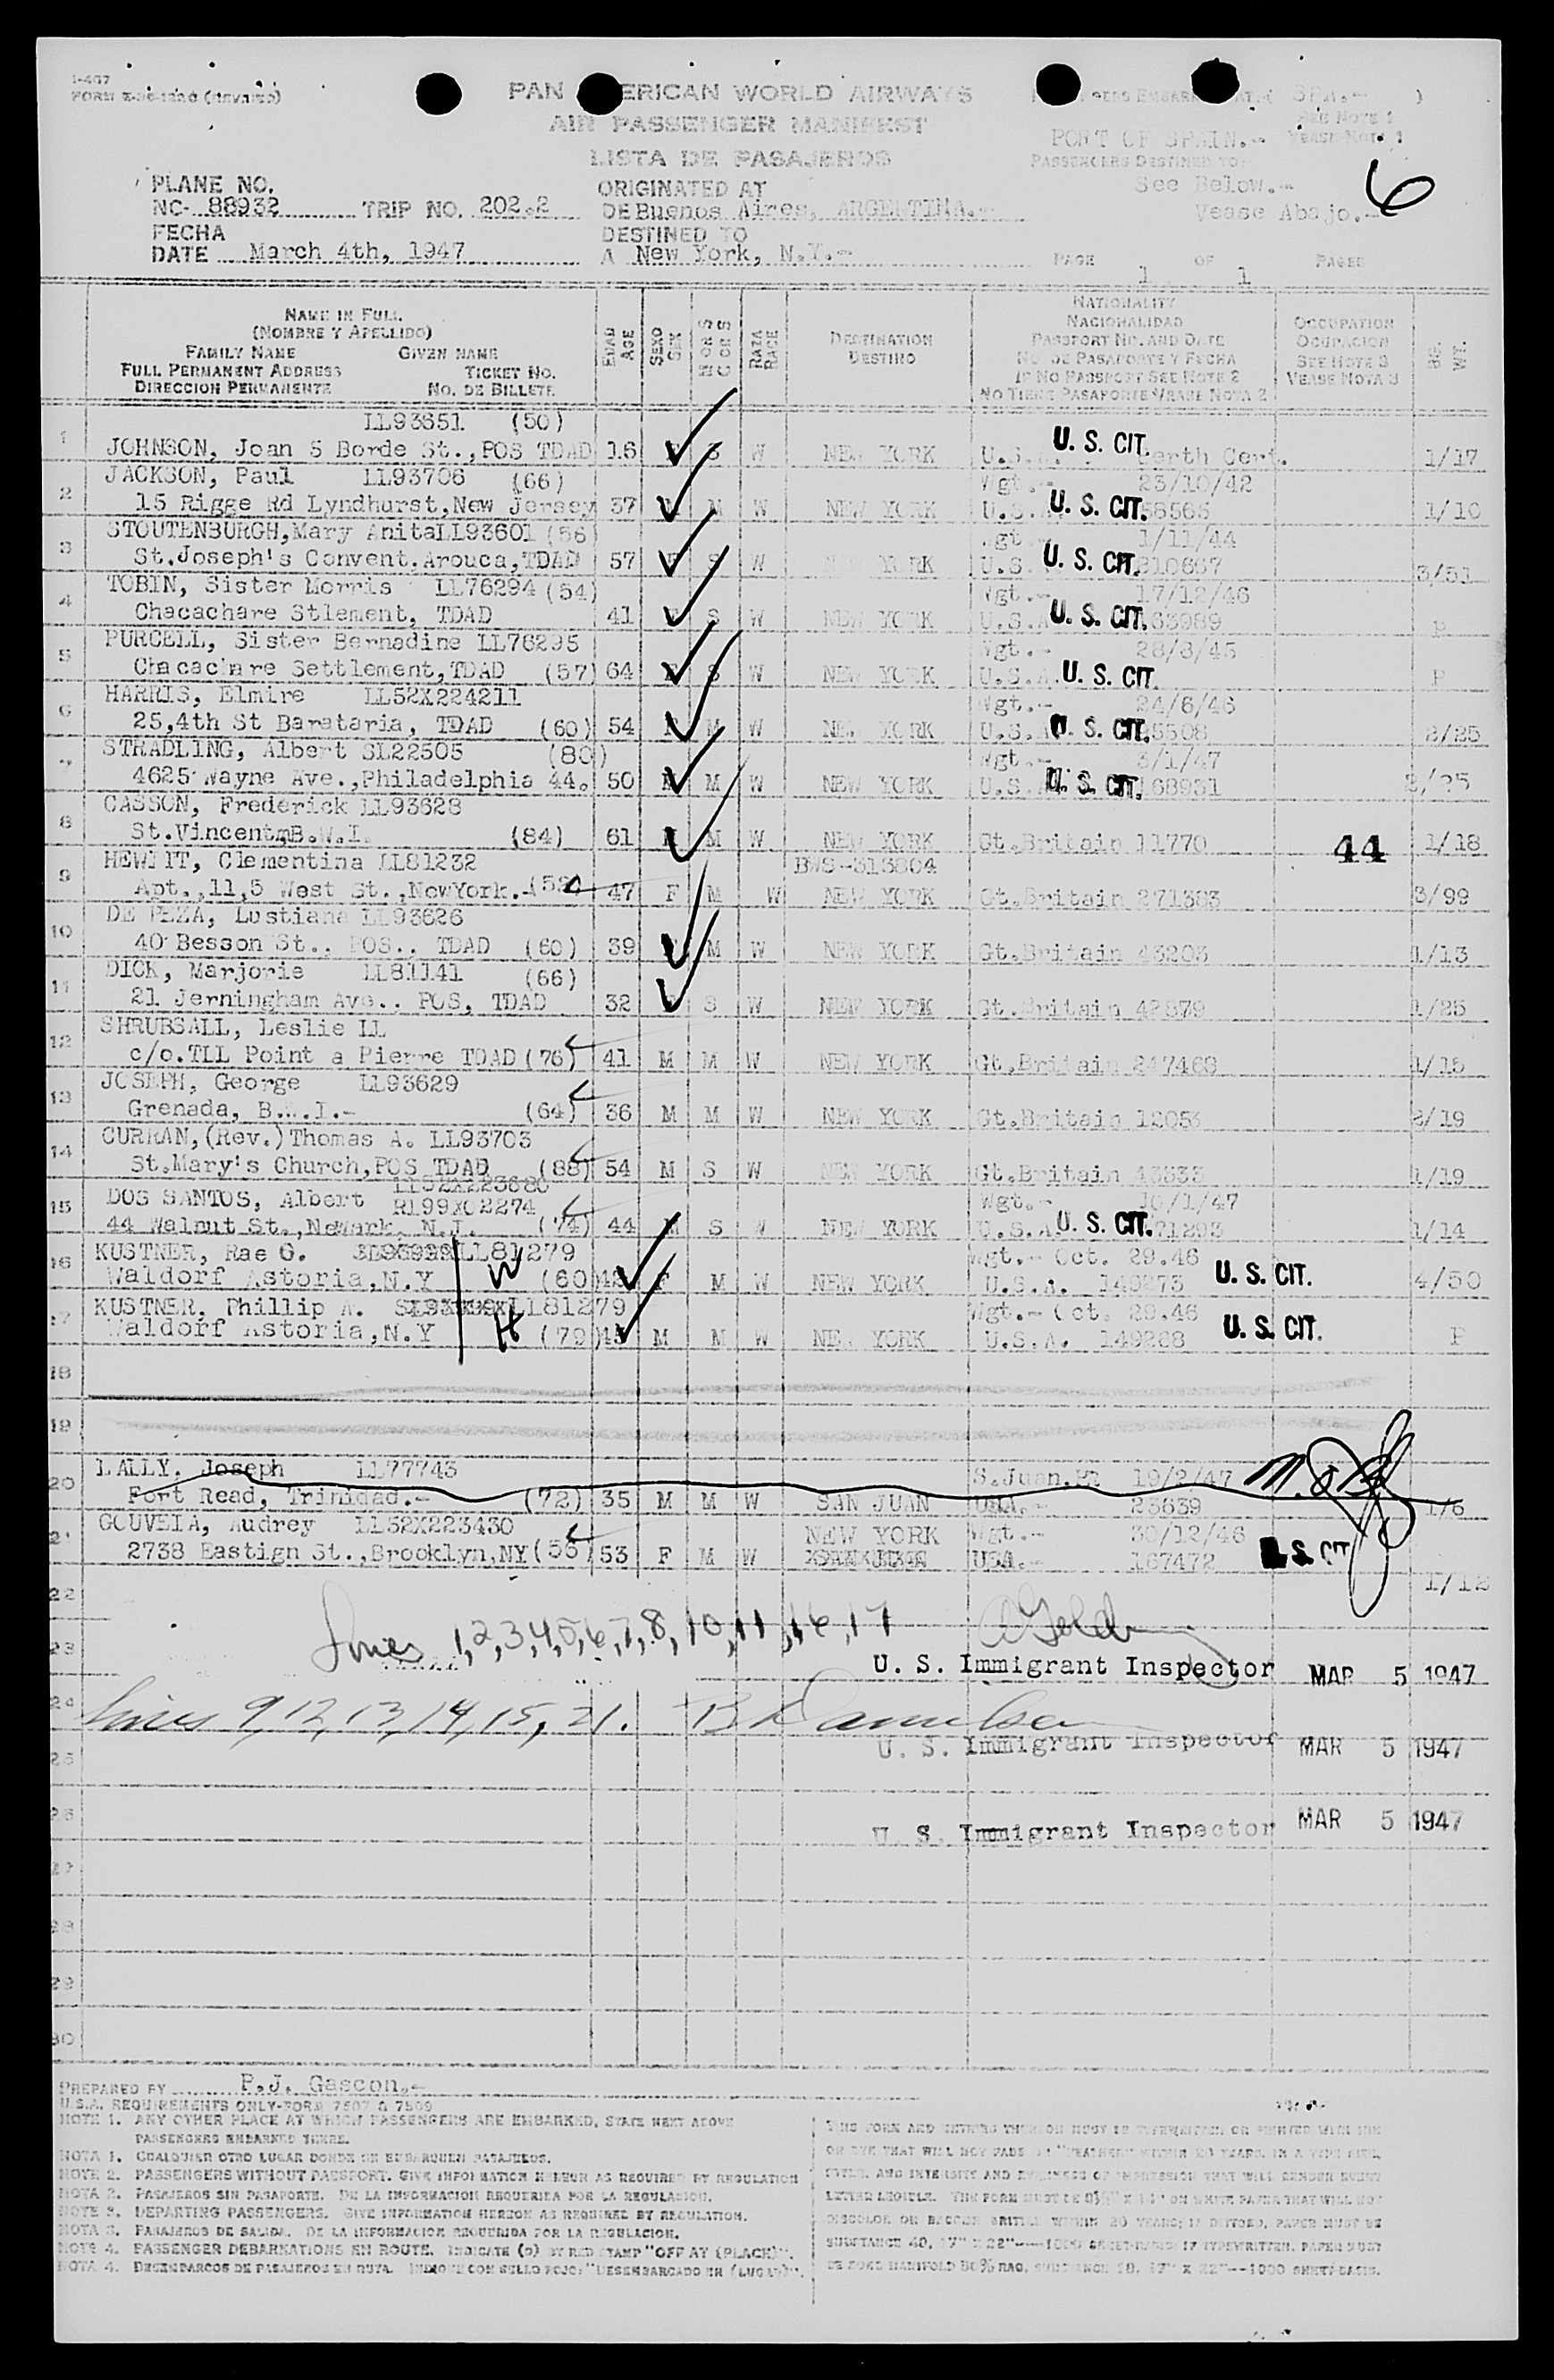 I-467
PAN AMERICAN WORLD AIRWAYS
AIR PASSENGER MANIFEST
LISTA DE PASAJEROS
PORT OF SPAIN.-
PASSENGERS DESTINED TO
See Below.-
Vease Abajo.-
6
PLANE NO.
NC- 88932 TRIP NO. 202-2
FECHA
DATE March 4th, 1947
ORIGINATED AT
DE Buenos Aires, ARGENTINA.-
DESTINED TO
A New York, N.Y.-
PAGE 1 OF 1 PAGES
NAME IN FULL
(NOMBRE Y APELLIDO)
FAMILY NAME GIVEN NAME
FULL PERMANENT ADDRESS TICKET NO.
DIRECCION PERMANENTE NO. DE BILLETE
EDAD AGE
SEXO SEX
RAZA RACE
DESTINATION
DESTINO
NATIONALITY
NACIONALIDAD
PASSPORT NO. AND DATE
NO. DE PASAPORTE Y FECHA
IF NO PASSPORT SEE NOTE 2
NO TIENE PASAPORTE VEASE NOTA 2
OCCUPATION
OCUPACION
SEE NOTE 3
VEASE NOTA 3
WT.
LL93651 (50)
1 JOHNSON, Joan 5 Borde St.,POS TDAD 16 S W NEW YORK U.S. U. S. CIT. Cert. 1/17
JACKSON, Paul LL93706 (66) Wgt.- 23/10/42
2 15 Rigge Rd Lyndhurst,New Jersey 37 M W NEW YORK U.S. U. S. CIT. 1/10
STOUTENBURGH,Mary Anita LL93601 (56) 1/11/44
3 St.Joseph's Convent.Arouca,TDAD 57 S W YORK U.S. U. S. CIT. 3/51
TOBIN, Sister Morris LL76294 (54) Wgt.- 17/12/46
4 Chacachare Stlement, TDAD 41 S W NEW YORK U.S.A U. S. CIT. 63989 P
PURCELL, Sister Bernadine LL76295 Wgt.- 28/8/45
5 Chacachare Settlement,TDAD (57) 64 S W NEW YORK U.S.A. U. S. CIT. P
HARRIS, Elmire LL52X224211 Wgt.- 24/6/46
6 25,4th St Barataria, TDAD (60) 54 M W NEW YORK U.S.A U. S. CIT. 2/25
STRADLING, Albert SL22505 (80) Wgt.- 3/1/47
7 4625 Wayne Ave.,Philadelphia 44. 50 M W NEW YORK U.S. U. S. CIT. 168931
CASSON, Frederick LL93628
8 St.Vincent,B.W.I. (84) 61 M W NEW YORK Gt.Britain 11770 44 1/18
HEWITT, Clementina LL81232 BWS-313804
9 Apt.,11,5 West St.,NewYork.- 47 F M W NEW YORK Gt.Britain 271383 3/99
DE PEZA, Lustiana LL93626
10 40 Besson St.. POS., TDAD (60) 39 M W NEW YORK Gt.Britain 43203 1/13
DICK, Marjorie LL81141 (66)
11 21 Jerningham Ave.. POS, TDAD 32 S W NEW YORK Gt.Britain 42879 1/25
SHRUBSALL, Leslie LL
12 c/o.TLL Point a Pierre TDAD (76) 41 M M W NEW YORK Gt.Britain 247468 1/15
JOSEPH, George LL93629
13 Grenada, B.W.I.- (64) 36 M M W NEW YORK Gt.Britain 12053 2/19
CURRAN,(Rev.)Thomas A. LL93703
14 St.Mary's Church,POS TDAD (88) 54 M S W NEW YORK Gt.Britain 43533 1/19
LL52X223680
DOS SANTOS, Albert R199X02274 Wgt.- 10/1/47
15 44 Walnut St.,Newark, N.J. (74) 44 S W NEW YORK U.S.A. U. S. CIT. 71293 1/14
KUSTNER, Rae G. LL81279 Wgt.- Oct. 29.46
16 Waldorf Astoria,N.Y W (60) 42 F M W NEW YORK U.S.A. 149273 U. S. CIT. 4/50
KUSTNER, Phillip A. LL81279 Wgt.- Oct. 29.46
17 Waldorf Astoria,N.Y H (79) M M W NEW YORK U.S.A. 149268 U. S. CIT. P
18
19
LALLY, Joseph LL77743 S.Juan.PR 19/2/47
20 Fort Read, Trinidad.- (72) 35 M M W SAN JUAN USA.- 23639 1/6
GOUVEIA, Audrey LL52X223430 NEW YORK Wgt.- 30/12/46
21 2738 Eastign St.,Brooklyn,NY (56) 53 F M W USA.- 167472 U. S. CIT 1/12
22
23 Lines 1,2,3,4,5,6,7,8,10,11,16,17
U. S. Immigrant Inspector MAR 5 1947
24 Lines 9,12,13,14,15,21.
25 U. S. Immigrant Inspector MAR 5 1947
26 U. S. Immigrant Inspector MAR 5 1947
27
28
29
30
PREPARED BY P.J. Gascon.-
U.S.A. REQUIREMENTS ONLY-FORM 7507 & 7509
NOTE 1. ANY OTHER PLACE AT WHICH PASSENGERS ARE EMBARKED, STATE NEXT ABOVE
PASSENGERS EMBARKED THERE.
NOTA 1. CUALQUIER OTRO LUGAR DONDE SE EMBARQUEN PASAJEROS.
NOTE 2. PASSENGERS WITHOUT PASSPORT. GIVE INFORMATION HEREON AS REQUIRED BY REGULATION
NOTA 2. PASAJEROS SIN PASAPORTE. DE LA INFORMACION REQUERIDA POR LA REGULACION.
NOTE 3. DEPARTING PASSENGERS. GIVE INFORMATION HEREON AS REQUIRED BY REGULATION.
NOTA 3. PASAJEROS DE SALIDA. DE LA INFORMACION REQUERIDA POR LA REGULACION.
NOTE 4. PASSENGER DEBARKATIONS EN ROUTE. INDICATE (D) BY RED STAMP "OFF AT (PLACE)".
NOTA 4. DESEMBARCOS DE PASAJEROS EN RUTA. INDIQUE CON SELLO ROJO: "DESEMBARCADO EN (LUGAR)".